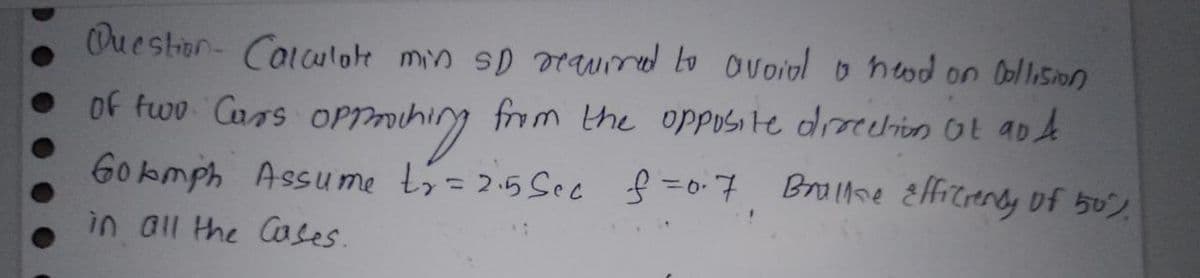 Question- Calculate min SD required to avoid a head on Collision
of two Cars opproching from the opposite direction at 90 &
60 kmph Assume tr = 2.5 Sec f = 0.7, Brakke efficiency of 50%
in all the Cases.